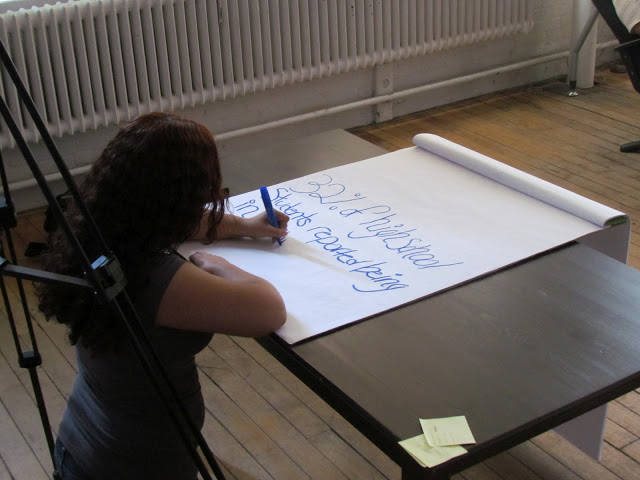 32% of high school
Students reported being
in